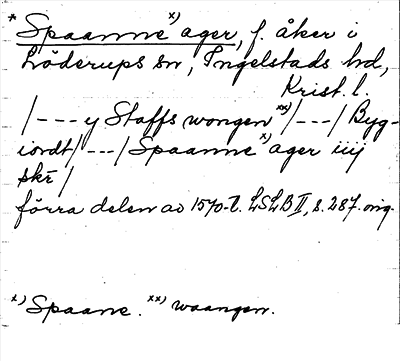 * Spaanne x) ager, f. åker i
Löderups sn, Ingelstads hd,
Krist. l.
/---y Staffs wongen xx)/---/ Byg-
iordt/---/Spaanne x) ager iiij
skr /
förra delen av 1570-t. LSLB II, s. 287. orig.
x) Spaane. xx) waangen.